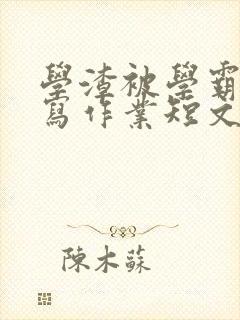 學渣被學霸
寫作業短文
陳木蘇